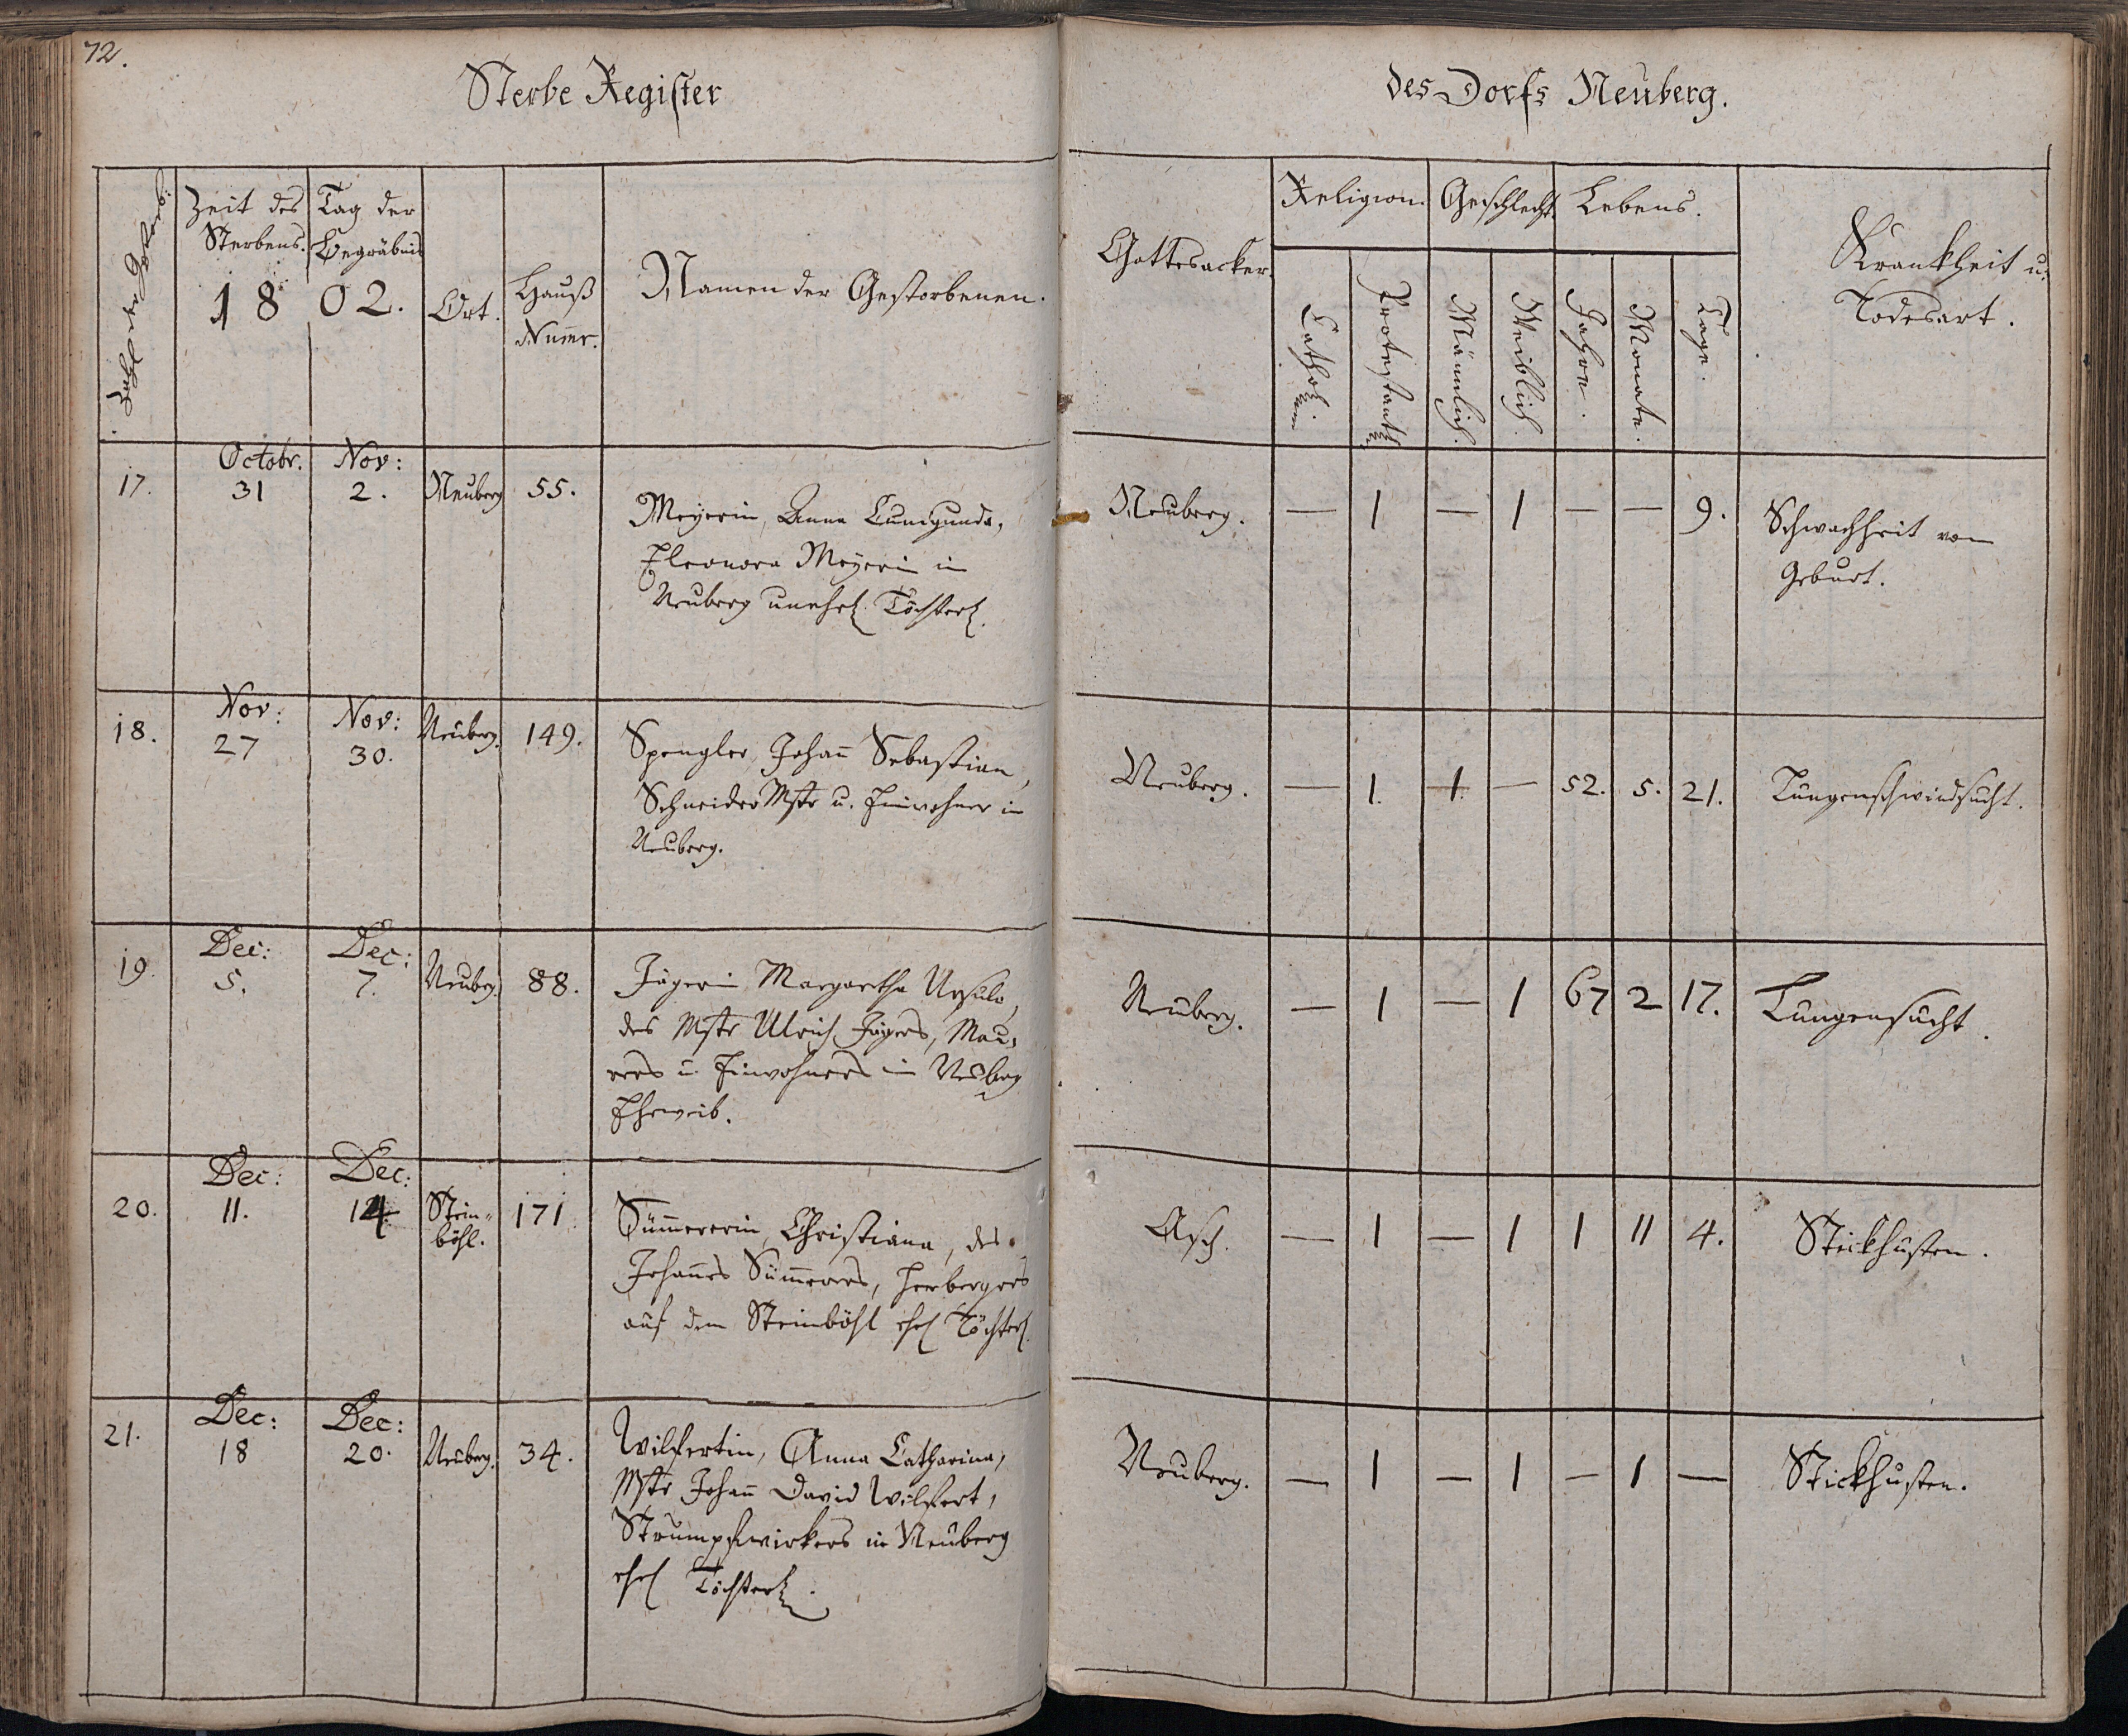 72.
Sterbe Register
des Dorfs Neuberg.
Zahl der Gestorb:
Zeit des Sterbens.
Tag der Begräbnis
1802.
Ort.
Hauß Num̅r.
Namen der Gestorbenen.
Gottesacker.
Religion.
Cathol.
Protestant
Geschlecht
Männlich.
Weiblich.
Lebens.
Jahre.
Monate.
Tage.
Krankheit u.
Todesart.
17. Octobr. 31 Nov: 2. Neuberg 55.
Meyerin, Anna Cunigunda,
Eleonora Meyerin in
Neuberg unehel. Töchterl.
Neuberg. — 1 — 1 — — 9. Schwachheit von
Geburt.
18. Nov: 27 Nov: 30. Neuberg. 149.
Spengler, Johan̅ Sebastian,
Schneider Mstr u. Einwohner in
Neuberg.
Neuberg. — 1. 1. — 52. 5. 21. Lungenschwindsucht.
19. Dec: 5. Dec: 7. Neuberg. 88.
Jägerin Margaretha Ursula,
des Mstr Ulrich Jägers, Mau,
rers u. Einwohners in Neuberg
Eheweib.
Neuberg. — 1 — 1 67 2 17. Lungensucht.
20. Dec: 11. Dec: 14. Stein-
böhl. 171
Sümmererin, Christiana, des
Johan̅es Sümmerers, Herbergers
auf dem Steinböhl ehel Töchterl.
Asch. — 1 — 1 1 11 4. Stickhusten.
21. Dec: 18 Dec: 20. Neuberg. 34.
Wilfertin, Anna Catharina,
Mstr Johan̅ David Wilfert,
Strumpfwirkers in Neuberg
ehel Töchterl.
Neuberg. — 1 — 1 — 1 — Stickhusten.